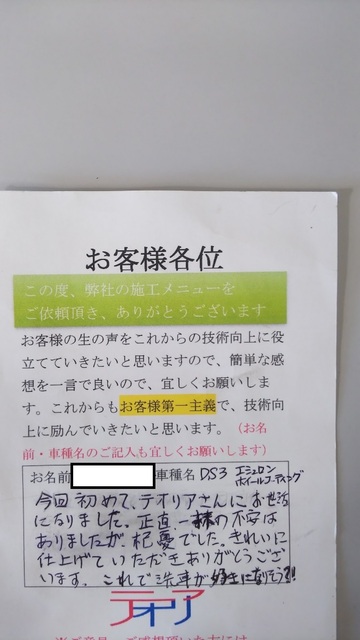 お客様各位
この度、弊社の施工メニューを
ご依頼頂き、ありがとうございます
お客様の生の声をこれからの技術向上に役
立てていきたいと思いますので、簡単な感
想を一言で良いので、宜しくお願いしま
す。これからもお客様第一主義で、技術向
上に励んでいきたいと思います。（お名
前・車種名のご記入も宜しくお願いします）
お名前 車種名 DS3 エシュロン
ホイールコーティング
今回初めて、テオリアさんにお世話
になりました。正直一抹の不安は
ありましたが、杞憂でした。きれいに
仕上げていただきありがとうござい
ます。これで洗車が好きになりそう?!
テオリア
※ご意見、ご感想頂いた方には